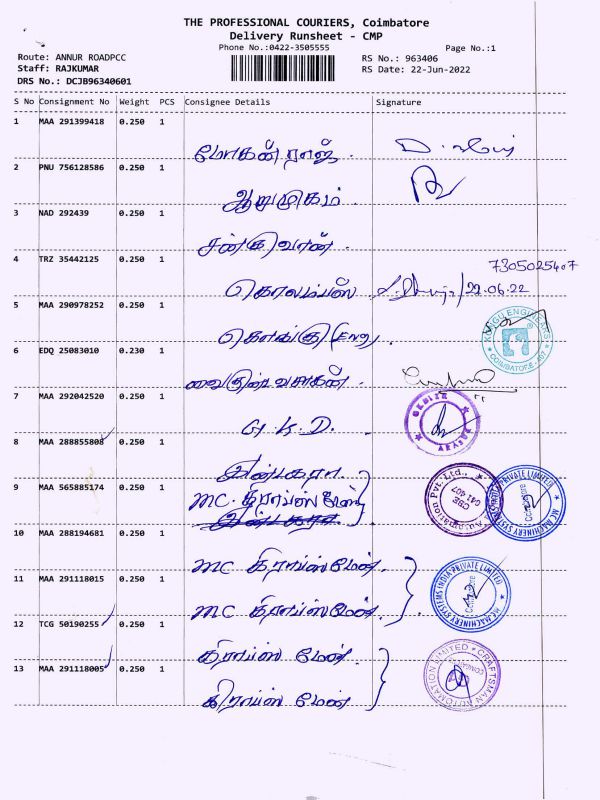 THE PROFESSIONAL COURIERS, Coimbatore
Delivery Runsheet - CMP
Phone No.:0422-3505555 Page No.:1
Route: ANNUR ROADPCC RS No.: 963406
Staff: RAJKUMAR RS Date: 22-Jun-2022
DRS No.: DCJB96340601
S No Consignment No Weight PCS Consignee Details Signature
1 MAA 291399418 0.250 1
மோகன் ராஜ்.
2 PNU 756128586 0.250 1
ஆறுமுகம்.
3 NAD 292439 0.250 1
4 TRZ 35442125 0.250 1
7305025407
22.06.22
5 MAA 290978252 0.250 1
KONGU ENGINEERS
COIMBATORE
6 EDQ 25083010 0.230 1
7 MAA 292042520 0.250 1
G.K.D.
8 MAA 288855808 0.250 1
9 MAA 565885174 0.250 1
MC. கிராப்ஸ் மேன்
Automation Pvt. Ltd.,
CBE
641 407
MC MACHINERY SYSTEMS INDIA PRIVATE LIMITED
Coimbatore
10 MAA 288194681 0.250 1
MC கிராப்ஸ் மேன்.
11 MAA 291118015 0.250 1
MC கிராப்ஸ் மேன்.
MC MACHINERY SYSTEMS INDIA PRIVATE LIMITED
Coimbatore
12 TCG 50190255 0.250 1
கிராப்ஸ் மேன்.
13 MAA 291118005 0.250 1
கிராப்ஸ் மேன்.
CRAFTSMAN AUTOMATION LIMITED